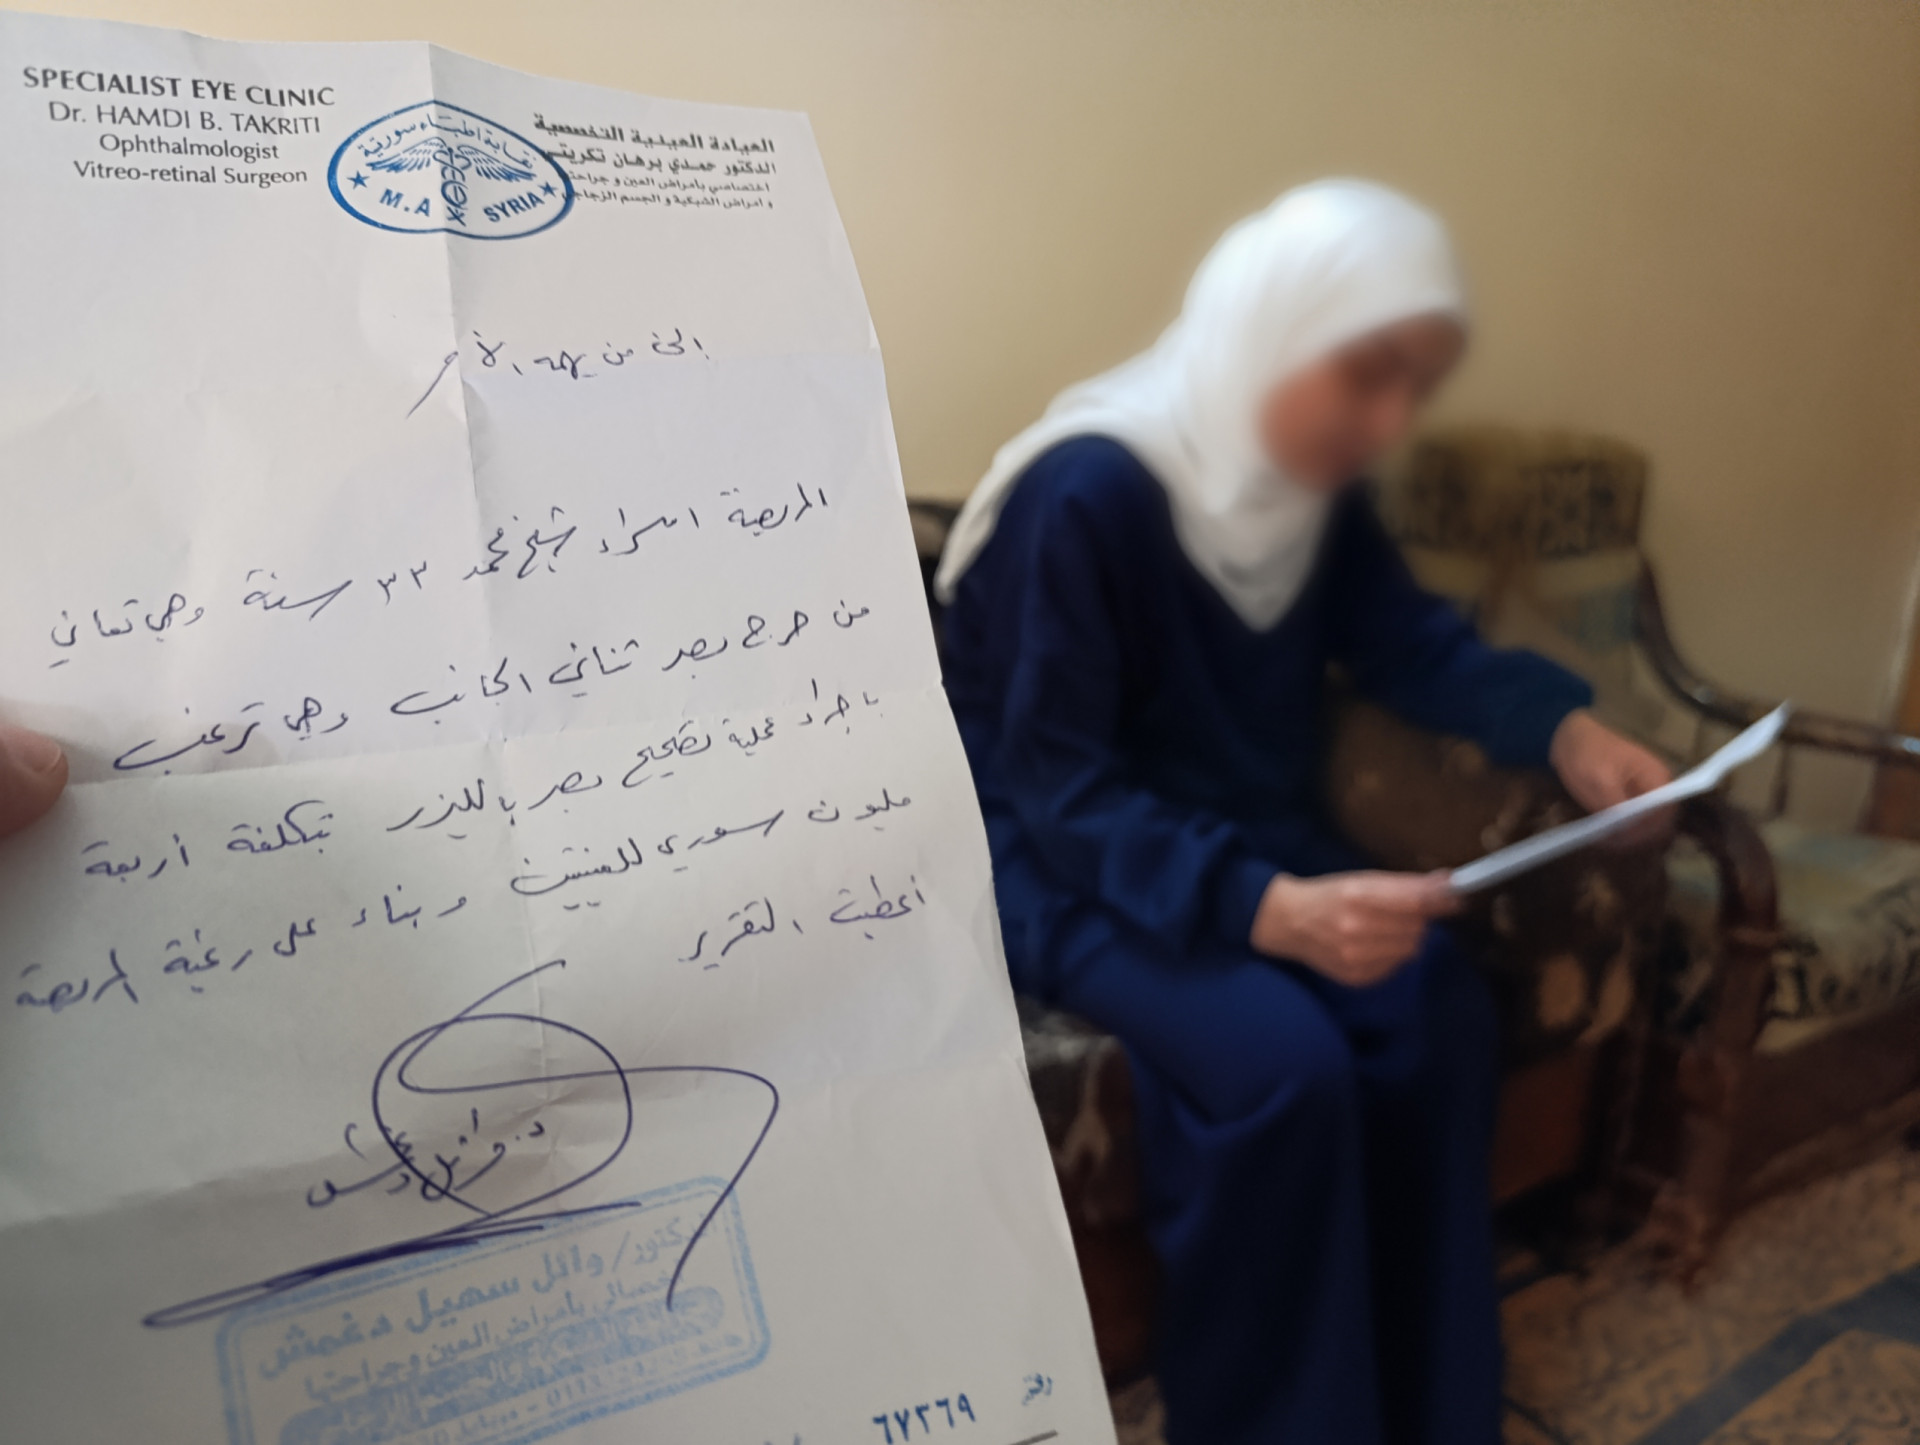 SPECIALIST EYE CLINIC
Dr. HAMDI B. TAKRITI
Ophthalmologist
Vitreo-retinal Surgeon
نقابة اطباء سورية
M.A SYRIA
العيادة العينية التخصصية
الدكتور حمدي برهان تكريتي
اختصاصي بأمراض العين و جراحتها
و امراض الشبكية و الجسم الزجاجي
إلى من يهمه الأمر
المريضة اسراء شيخ محمد ٣٣ سنة وهي تعاني
من حرج بصر ثنائي الجانب وهي ترغب
باجراء عملية تصحيح بصر بالليزر بتكلفة أربعة
مليون سوري للعينتين وبناء على رغبة المريضة
أعطيت التقرير
د. وائل دغمش
الدكتور/ وائل سهيل دغمش
بأمراض العين وجراحتها
رقم ٦٧٣٦٩